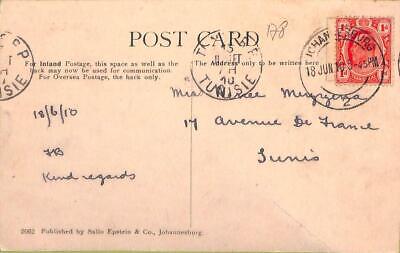 178
POST CARD
For Inland Postage, this space as well as the
back may now be used for communication.
For Oversea Postage, the back only.
The Address only to be
written here
TUNISIE
JOHANNESBURG
18 JUN 10 3-45PM
18/6/10
Miss
17 Avenue De France
Tunis
FB
Kind regards
2662 Published by Sallo Epstein & Co., Johannesburg.